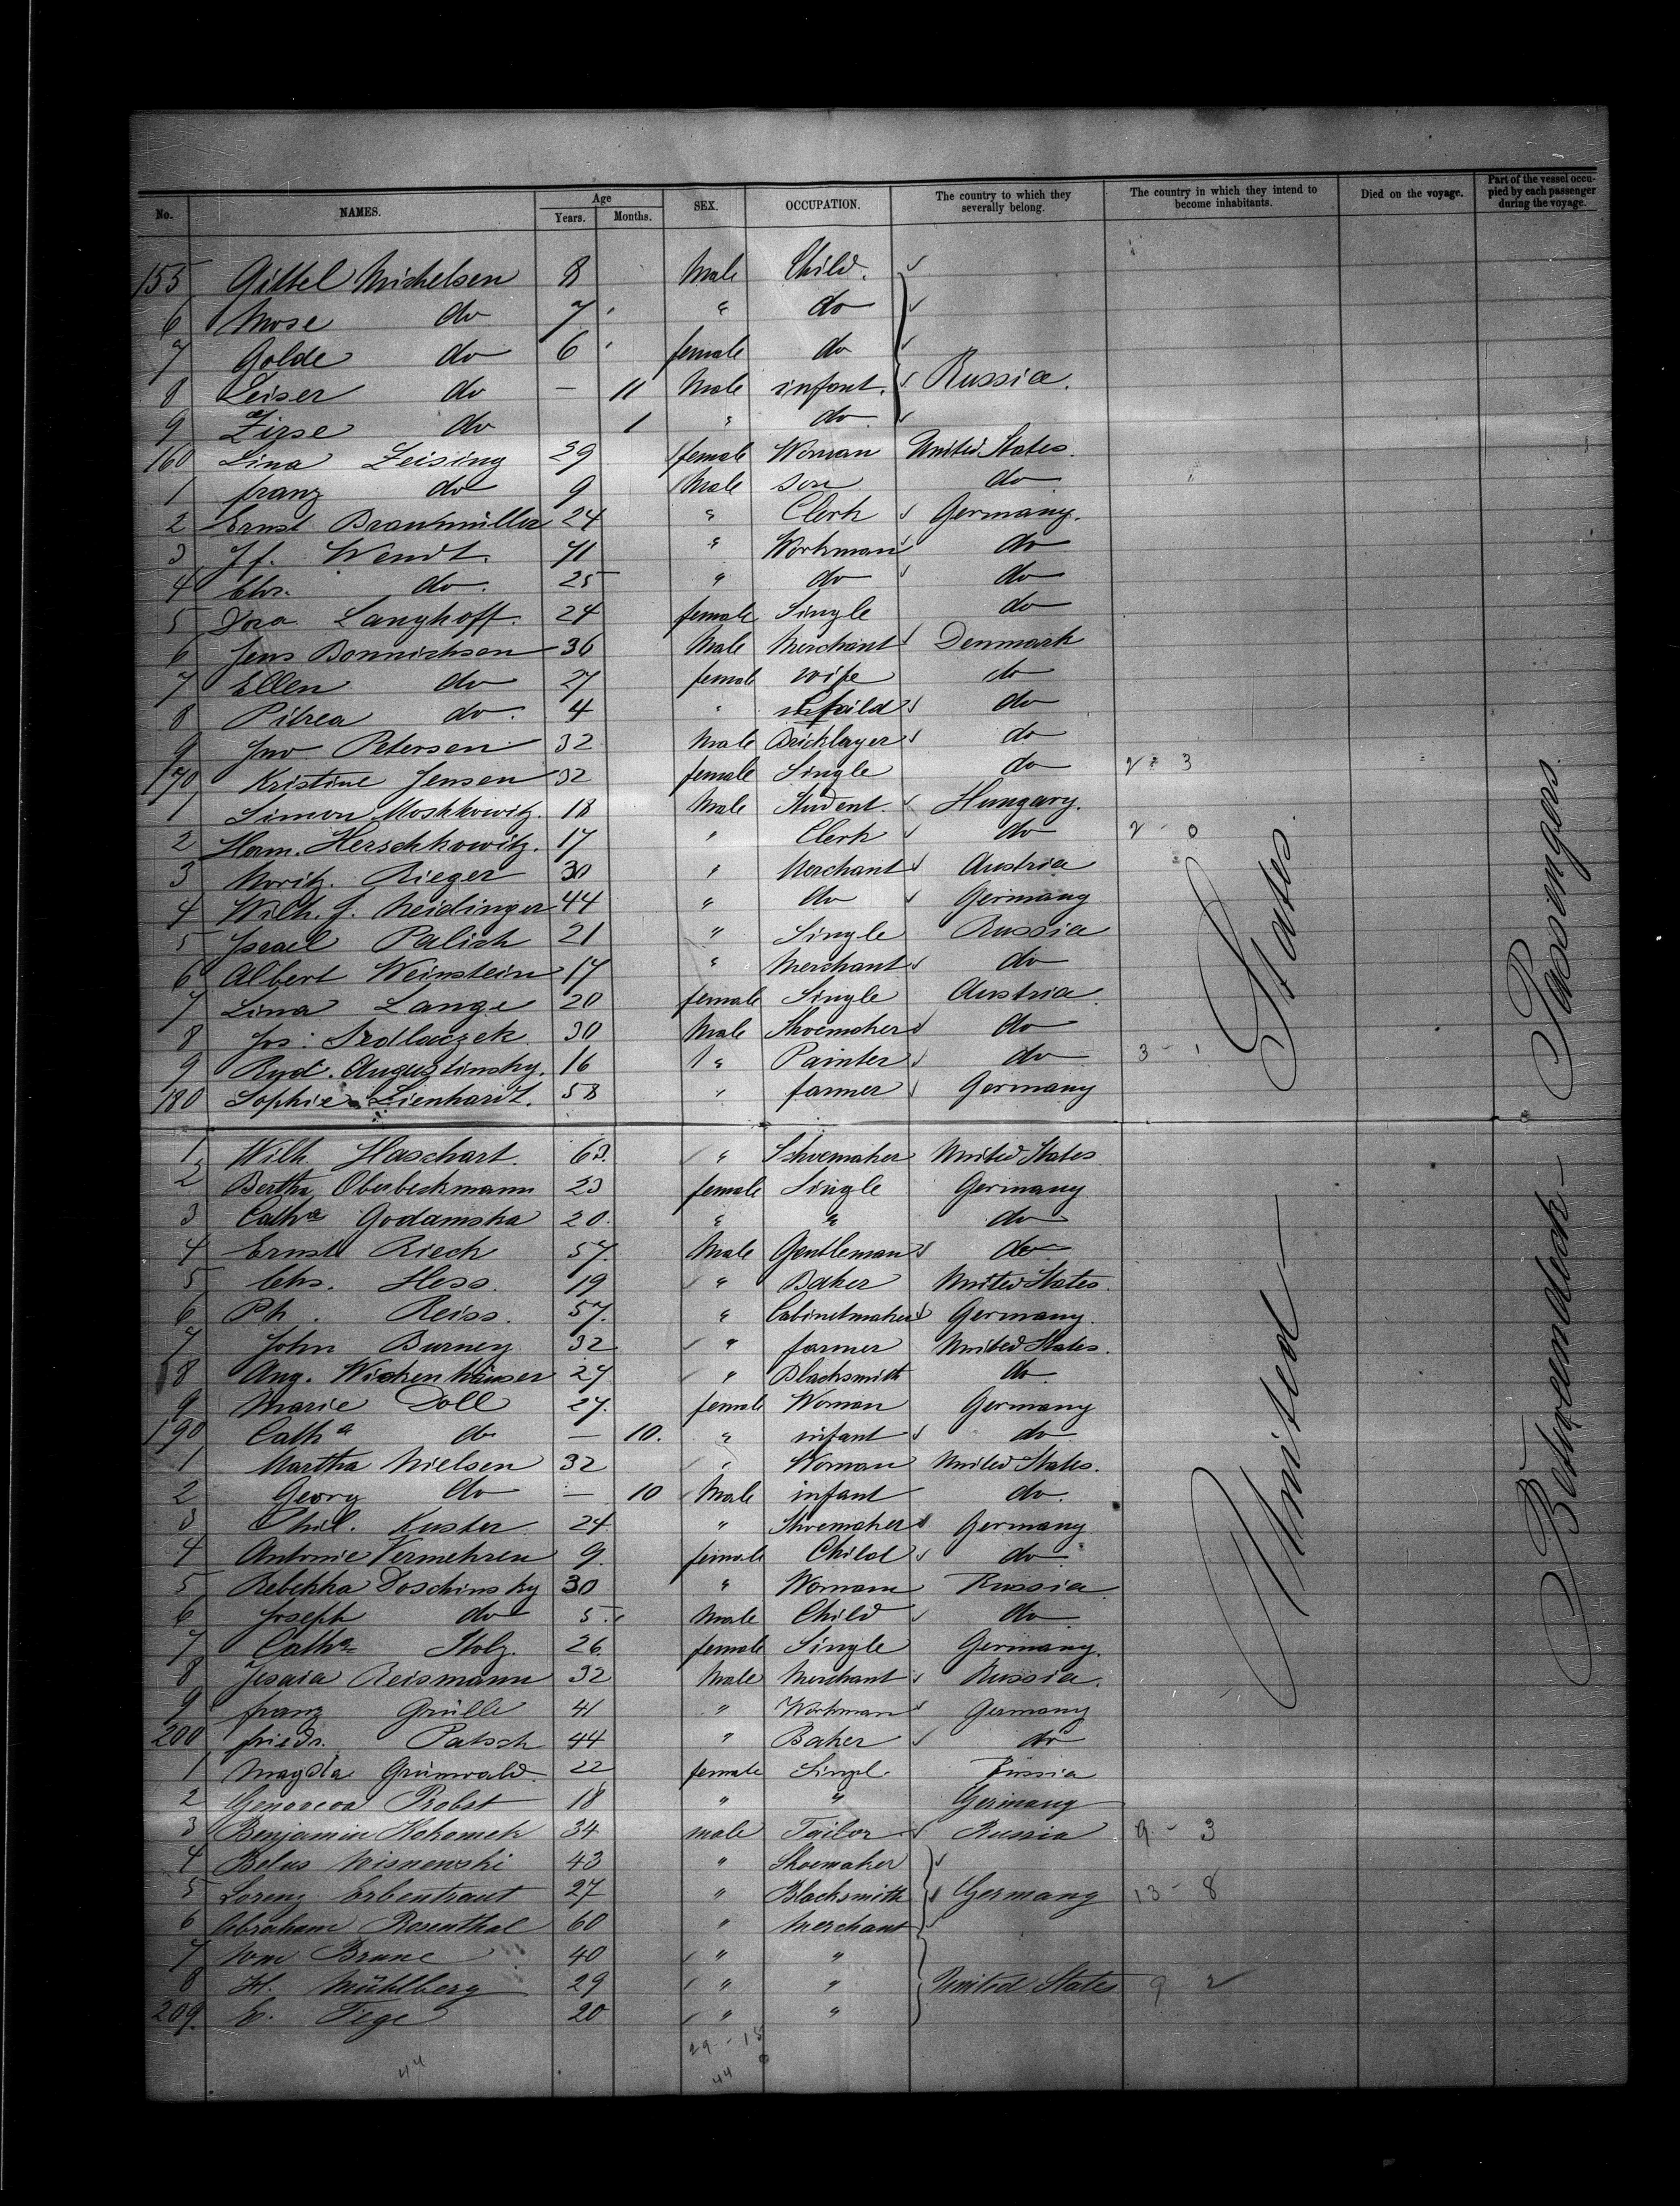 No. NAMES. Age Years. Months. SEX. OCCUPATION. The country to which they severally belong. The country in which they intend to become inhabitants. Died on the voyage. Part of the vessel occupied by each passenger during the voyage.
155 Gittel Michelsen 8 Male Child.
6 Mose do 7 " do
7 Golde do 6 female do
8 Leiser do — 11 Male infant. Russia.
9 Zirse do 1 " do
160 Lina Zeising 29 female Woman United States.
1 franz do 9 Male son do
2 Ernst Braunmüller 24 " Clerk Germany.
3 J f. Wendt. 71 " Workman do
4 Chr. do. 25 " do do
5 Dora Langhoff. 24 female Single do
6 Jens Bonnichsen 36 Male Merchant Denmark
7 Ellen do 27 female wife do
8 Pitrea do. 4 " do
9 Jno Petersen 32 Male Bricklayer do
170 Kristine Jensen 32 female Single do 2 - 3
1 Simon Moskkowitz. 18 Male Student Hungary.
2 Ham. Herschkowitz. 17 " Clerk do 2 - 0
3 Moritz. Rieger 30 " Merchant Austria
4 Wilh. f. Neidinger 44 " do Germany
5 Israel Palich 21 " Single Russia
6 Albert Weinstein 17 " Merchant do
7 Lina Lange 20 female Single Austria.
8 Jos: Sedlaczek 30 Male Shoemaker do
9 Rud. Augustinsky. 16 " Painter do 3 - 1
180 Sophie Lienhardt. 58 " farmer Germany
1 Wilh. Haschart. 63. " Shoemaker United States
2 Bertha Oberbeckmann 23 female Single Germany
3 Catha Godamska 20. " " do
4 Ernst Riech 57. Male Gentleman do
5 Chs. Hess. 19 " Baker United States.
6 Ph. Reiss. 57. " Cabinetmaker Germany.
7 John Burney 32 " farmer United States.
8 Aug. Wickenhäuser 27 " Blacksmith do
9 Marie Doll 27. female Woman Germany
190 Catha do — 10. " infant do
1 Martha Nielsen 32 " Woman United States.
2 Georg do — 10 Male infant do.
3 Phil. Kuster 24 " Shoemaker Germany
4 Antonie Vermehren 9. female Child do
5 Rebekka Doschinsky 30 " Woman Russia
6 Joseph do 5. Male Child do
7 Catha Stolz. 26 female Single Germany.
8 Jesaia Reismann 32 Male Merchant Russia.
9 franz Grülle 41 " Workman Germany
200 friedr. Patsch 44 " Baker do
1 Magdla Grünwald. 22 female Singl. Russia
2 Genoveva Probst 18 " " Germany
3 Benjamin Kokomek 34 male Tailor Russia 9 - 3
4 Belus Wisnewski 43 " Shoemaker
5 Lorenz Erbentraut 27 " Blacksmith Germany 13 - 8
6 Abraham Rosenthal 60 " Merchant
7 Wm Brune 40 " "
8 H. Mühlberg 29 " " United States 9 2
209. E. Tege 20 " "
29 - 15
44 44
United States
Betweendeck Passengers.